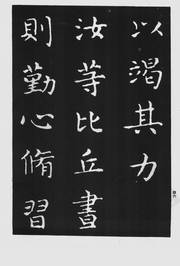 以竭其力
汝等比丘晝
則勤心脩習